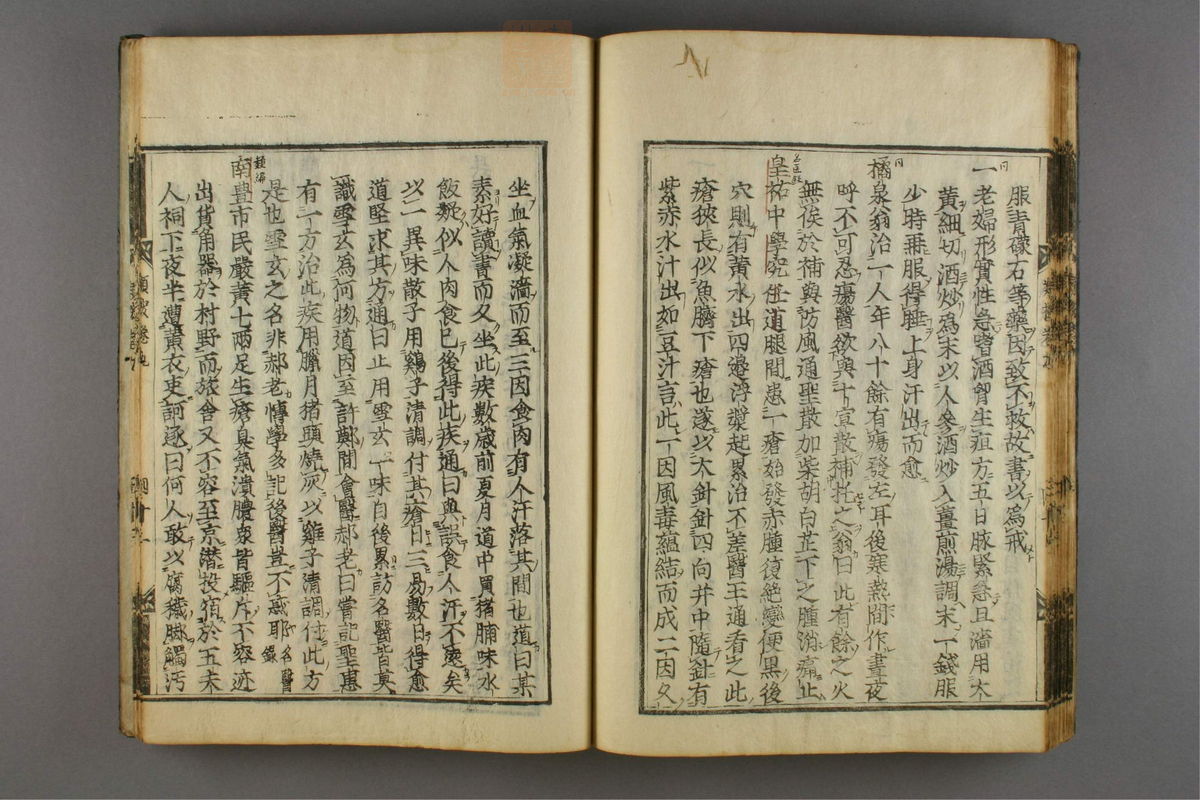 服青礞石等藥因致不救故書以爲戒
同
一老婦形實性急嗜酒腎生疽方五日脉緊急且濇用大
黃細切酒炒爲末以人參酒炒入薑煎湯調末一錢服
少時再服得睡上身汗出而愈
同
橘泉翁治一人年八十餘有瘍發左耳後寒熱間作晝夜
呼不可忍瘍醫欲與十宣散補托之翁曰此有餘之火
無俟於補與防風通聖散加柴胡白芷下之腫消痛止
名醫錄
皇祐中學究任道腿間患一瘡始發赤腫復絶變便黑後
穴則有黃水出四邊浮漿起累治不差醫王通看之此
瘡狹長似魚臍下瘡也遂以大針針四向井中隨針有
紫赤水汁出如豆汁言此一因風毒蘊結而成二因久
坐血氣凝濇而至三因食肉有人汗落其間也道曰某
素好讀書而久坐此疾數歲前夏月道中買猪脯味水
飯疑似人肉食已後得此疾通曰與誤食人汗不遠矣
以一異味散子用鷄子清調付其瘡日三易數日得愈
道堅求其方通曰止用雪玄一味自後累訪名醫皆莫
識雪玄爲何物道因至許鄭間會醫郝老曰嘗記聖惠
有一方治此疾用臘月猪頭燒灰以雞子清調付此方
是也雪玄之名非郝老博學多記後醫豈不惑耶 名醫錄
類編
南豊市民嚴黃七兩足生瘡臭氣潰膿衆皆驅斥不容迹
出貨角器於村野而旅舍又不容至京潜投宿於五未
人祠下夜半遭黃衣吏訶逐曰何人敢以腐穢脚觸汚
類案卷九